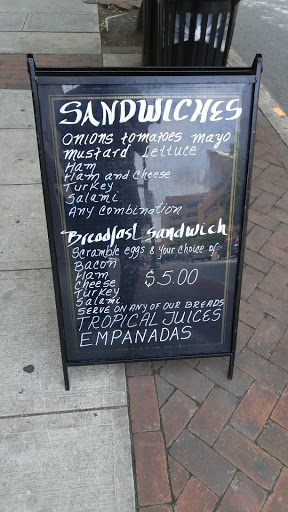 SANDWICHES
Onions tomatoes mayo
mustard Lettuce
Ham
Ham and cheese
Turkey
Salami
Any Combination
Breadfast Sandwich
Scramble eggs & your choice of:
Bacon
Ham $5.00
Cheese
Turkey
Salami
SERVE ON ANY OF OUR BREADS
TROPICAL JUICES
EMPANADAS